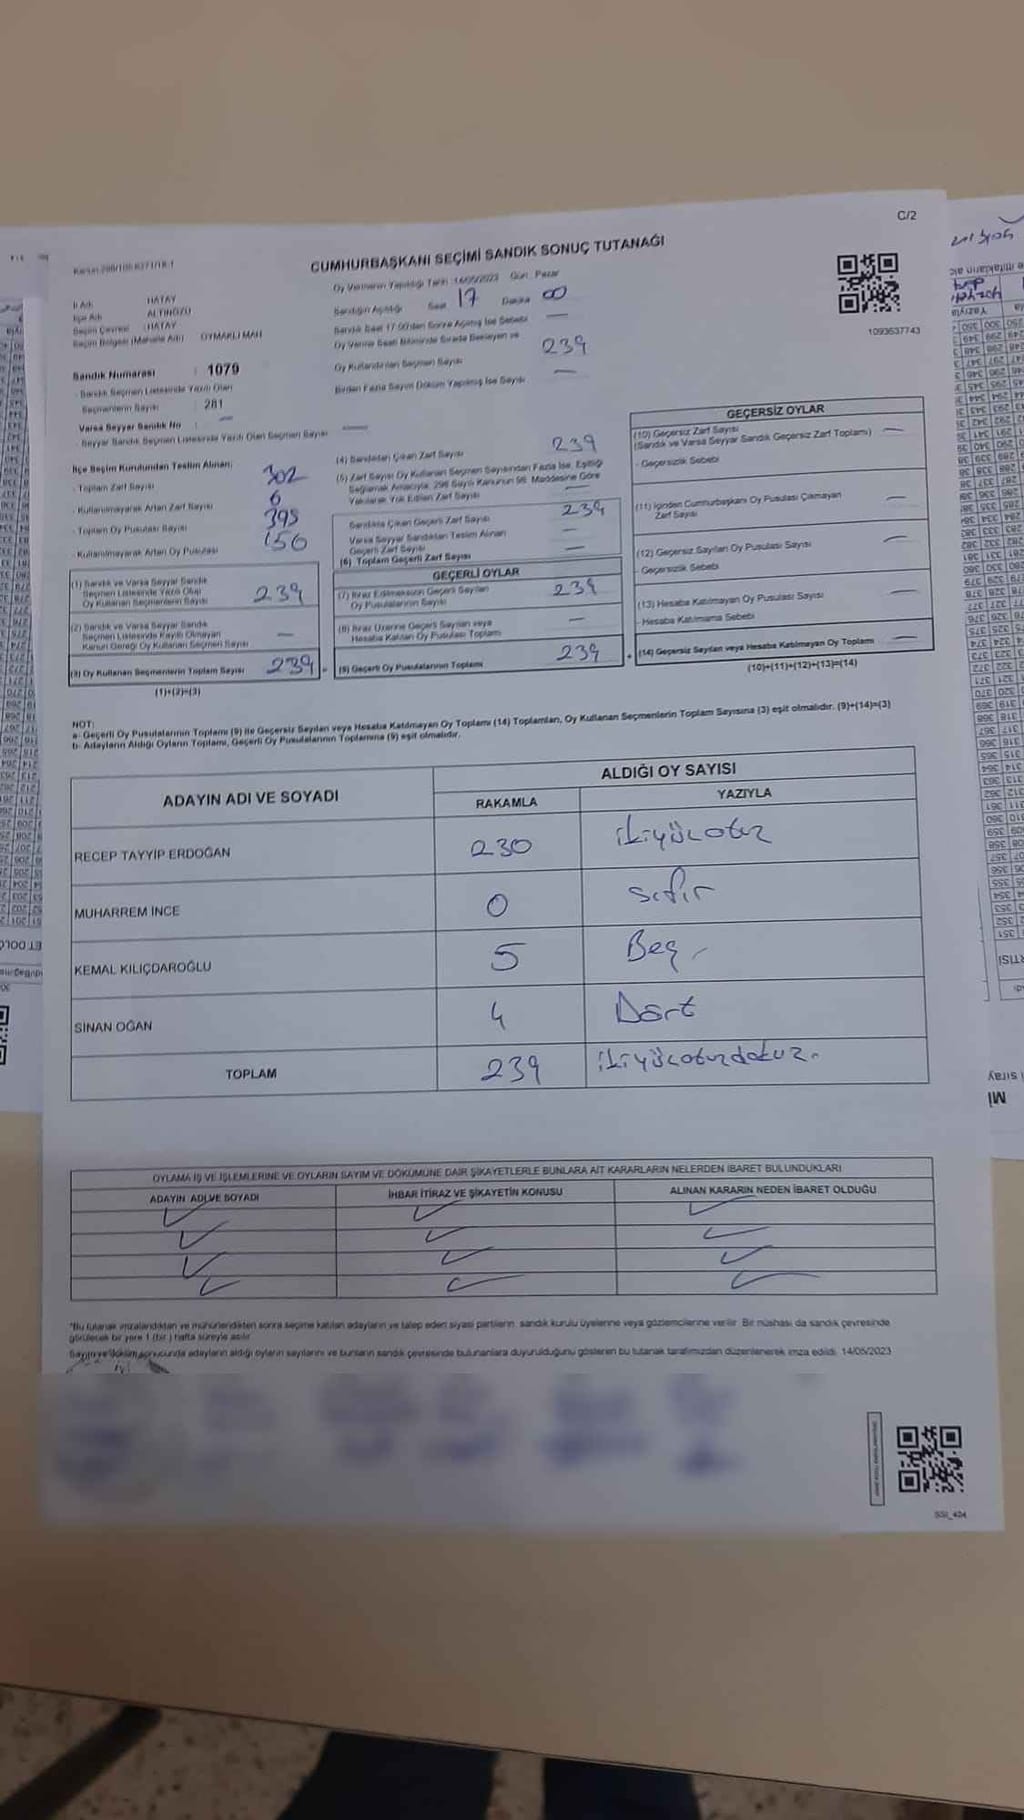 C/2
CUMHURBAŞKANI SEÇİMİ SANDIK SONUÇ TUTANAĞI
Oy Vermenin Yapıldığı Tarih 14/05/2023 Gün: Pazar
İl Adı HATAY
İlçe Adı ALTINÖZÜ
Seçim Çevresi HATAY
Seçim Bölgesi (Mahalle Adı) OYMAKLI MAH
Sandığın Açıldığı Saat 17 Dakika 00
Sandık Saat 17.00'den Sonra Açılmış İse Sebebi —
Oy Verme Saati Bitiminde Sırada Bekleyen ve
Oy Kullandırılan Seçmen Sayısı 239
Birden Fazla Sayım Döküm Yapılmış İse Sayısı —
1093537743
Sandık Numarası : 1079
- Sandık Seçmen Listesinde Yazılı Olan
Seçmenlerin Sayısı : 281
Varsa Seyyar Sandık No : —
- Seyyar Sandık Seçmen Listesinde Yazılı Olan Seçmen Sayısı —
İlçe Seçim Kurulundan Teslim Alınan;
- Toplam Zarf Sayısı 302
- Kullanılmayarak Artan Zarf Sayısı 6
- Toplam Oy Pusulası Sayısı 395
- Kullanılmayarak Artan Oy Pusulası 156
(1) Sandık ve Varsa Seyyar Sandık
Seçmen Listesinde Yazılı Olup
Oy Kullanan Seçmenlerin Sayısı 239
(2) Sandık ve Varsa Seyyar Sandık
Seçmen Listesinde Kayıtlı Olmayan
Kanun Gereği Oy Kullanan Seçmen Sayısı —
(3) Oy Kullanan Seçmenlerin Toplam Sayısı 239 =
(1)+(2)=(3)
(4) Sandıktan Çıkan Zarf Sayısı 239
(5) Zarf Sayısı Oy Kullanan Seçmen Sayısından Fazla İse, Eşitliği
Sağlamak Amacıyla, 298 Sayılı Kanunun 98. Maddesine Göre
Yakılarak Yok Edilen Zarf Sayısı —
Sandıkta Çıkan Geçerli Zarf Sayısı 239
Varsa Seyyar Sandıktan Teslim Alınan
Geçerli Zarf Sayısı —
(6) Toplam Geçerli Zarf Sayısı —
GEÇERLİ OYLAR
(7) İtiraz Edilmeksizin Geçerli Sayılan
Oy Pusulalarının Sayısı 239
(8) İtiraz Üzerine Geçerli Sayılan veya
Hesaba Katılan Oy Pusulası Toplamı —
(9) Geçerli Oy Pusulalarının Toplamı 239 +
GEÇERSİZ OYLAR
(10) Geçersiz Zarf Sayısı
(Sandık ve Varsa Seyyar Sandık Geçersiz Zarf Toplamı) —
- Geçersizlik Sebebi
(11) İçinden Cumhurbaşkanı Oy Pusulası Çıkmayan
Zarf Sayısı —
(12) Geçersiz Sayılan Oy Pusulası Sayısı —
- Geçersizlik Sebebi
(13) Hesaba Katılmayan Oy Pusulası Sayısı —
- Hesaba Katılmama Sebebi
(14) Geçersiz Sayılan veya Hesaba Katılmayan Oy Toplamı —
(10)+(11)+(12)+(13)=(14)
NOT:
a- Geçerli Oy Pusulalarının Toplamı (9) ile Geçersiz Sayılan veya Hesaba Katılmayan Oy Toplamı (14) Toplamları, Oy Kullanan Seçmenlerin Toplam Sayısına (3) eşit olmalıdır. (9)+(14)=(3)
b- Adayların Aldığı Oyların Toplamı, Geçerli Oy Pusulalarının Toplamına (9) eşit olmalıdır.
ADAYIN ADI VE SOYADI
ALDIĞI OY SAYISI
RAKAMLA YAZIYLA
RECEP TAYYİP ERDOĞAN 230 ikiyüzotuz
MUHARREM İNCE 0 sıfır
KEMAL KILIÇDAROĞLU 5 Beş
SİNAN OĞAN 4 Dört
TOPLAM 239 ikiyüzotuzdokuz
OYLAMA İŞ VE İŞLEMLERİNE VE OYLARIN SAYIM VE DÖKÜMÜNE DAİR ŞİKAYETLERLE BUNLARA AİT KARARLARIN NELERDEN İBARET BULUNDUKLARI
ADAYIN ADI VE SOYADI İHBAR İTİRAZ VE ŞİKAYETİN KONUSU ALINAN KARARIN NEDEN İBARET OLDUĞU
*Bu tutanak imzalandıktan ve mühürlendikten sonra seçime katılan adayların ve talep eden siyasi partilerin sandık kurulu üyelerine veya gözlemcilerine verilir. Bir nüshası da sandık çevresinde
görülecek bir yere 1 (bir) hafta süreyle asılır.
Sayım ve döküm sonucunda adayların aldığı oyların sayılarını ve bunların sandık çevresinde bulunanlara duyurulduğunu gösteren bu tutanak tarafımızdan düzenlenerek imza edildi. 14/05/2023
SSI_424